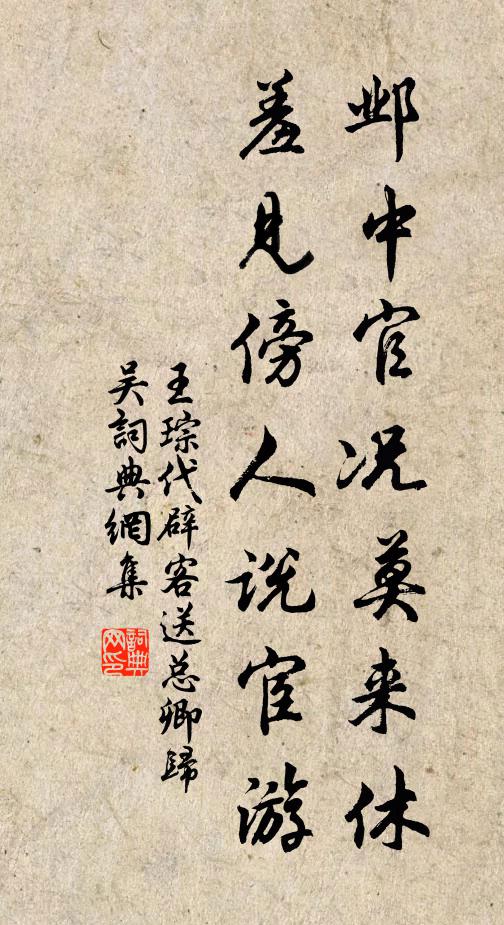 邺中官况莫来休
羞见傍人说宦游
王琮代辟客送总卿歸
吴詞典網集
詞典网印